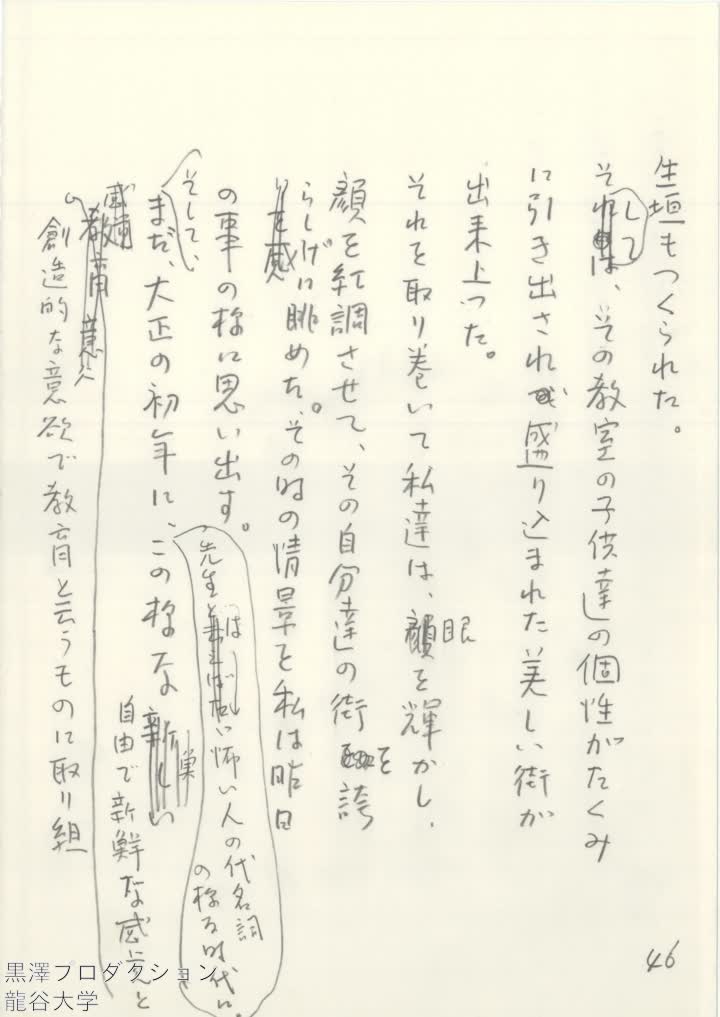 生垣もつくられた。
そして、その教室の子供達の個性がたくみ
に引き出され盛り込まれた美しい街が
出来上った。
それを取り巻いて私達は、眼を輝かし、
顔を紅調させて、その自分達の街を誇
らしげに眺めた。その時の情景を私は昨日
の事の様に思い出す。
そして、
まだ、大正の初年に、この様な
先生とは怖い人の代名詞
の様な時代に。
自由で新鮮な感覚と
創造的な意欲で教育と云うものに取り組
46
黒澤プロダクション
龍谷大学